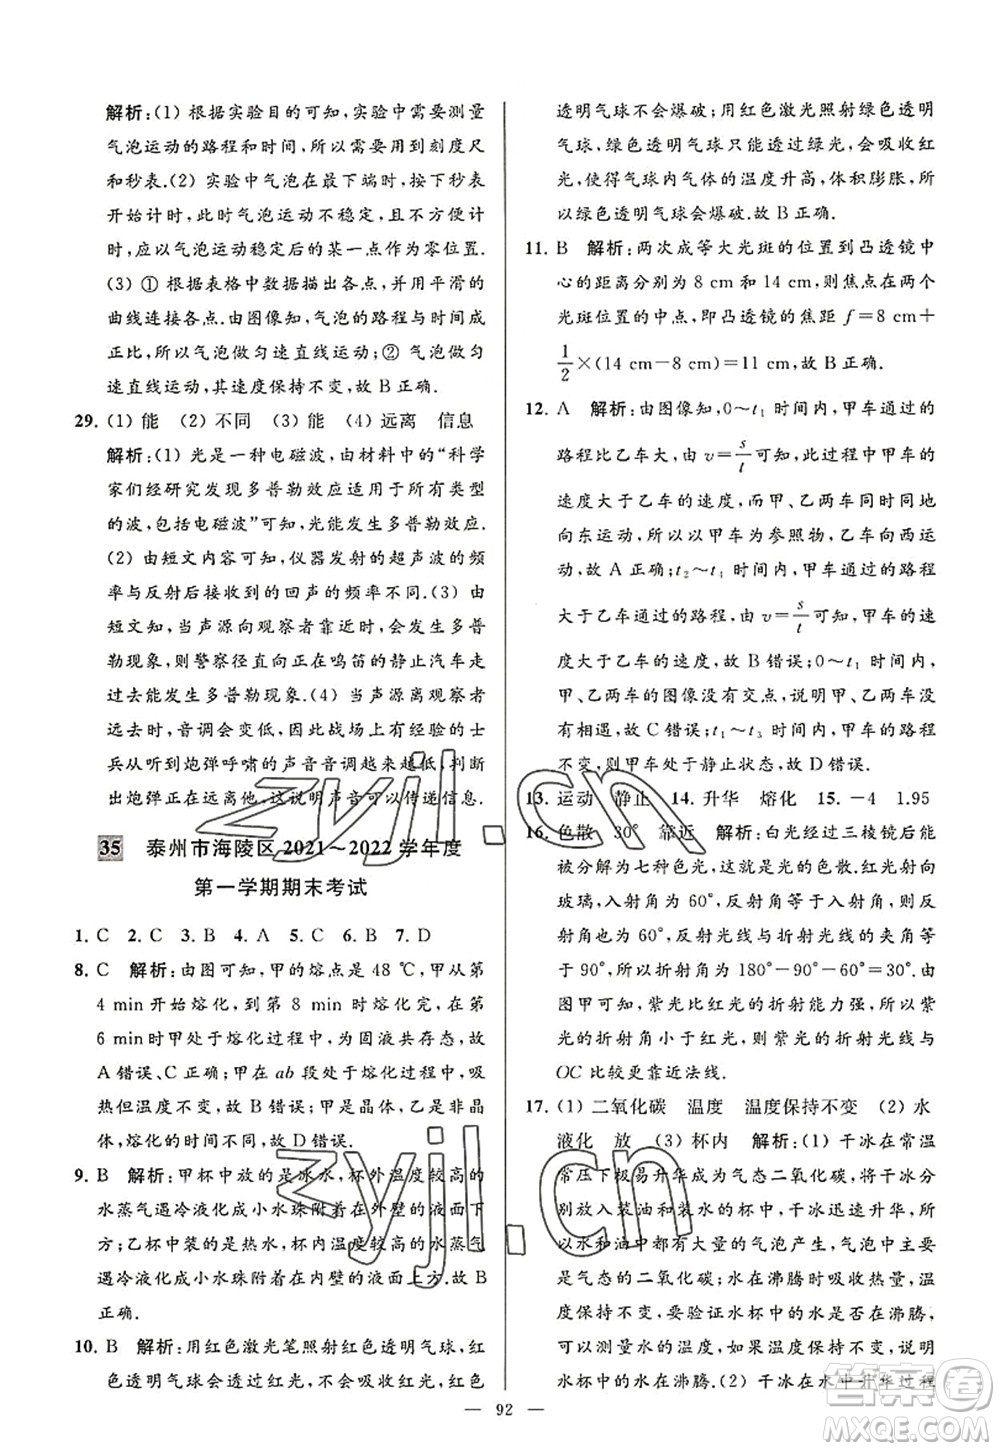 解析:(1) 根据实验目的可知,实验中需要测量
气泡运动的路程和时间,所以需要用到刻度尺
和秒表.(2) 实验中气泡在最下端时,按下秒表
开始计时,此时气泡运动不稳定,会影响测量速
度时,应以气泡运动稳定后的某一点作为零位置.
(3) ① 根据表格中数据描出各点,并用平滑的
曲线连接各点.由图像知,气泡的路程与时间成
正比,所以气泡做匀速直线运动;② 气泡做匀
速直线运动,其速度保持不变,故 B 正确.
29. (1) 能 (2) 不同 (3) 能 (4) 远离 信息
解析:(1) 光是一种电磁波,由材料中的“科学
家们经研究发现多普勒效应适用于所有类型
的波,包括电磁波”可知,光能发生多普勒效应.
(2) 由短文内容可知,仪器发射的超声波的频
率与经血液反射后的回声的频率不同.(3) 由
短文知,当声源向观察者靠近时,会发生多普勒
现象,则警察径直向正在鸣笛的静止汽车走
过去能发生多普勒现象.(4) 当声源离观察者
远去时,音调会变低,所以战场上有经验的士
兵从炮弹呼啸的声音音调越来越低,判断
出炮弹正在远离他,这说明声可以传递信息.
35 泰州市海陵区 2021～2022 学年度
第一学期期末考试
1. C 2. C 3. B 4. A 5. C 6. B 7. D
8. C 解析:由图可知,甲的熔点是 48 ℃,甲从第
4 min 开始熔化,到第 8 min 时熔化完,在第
6 min 时甲处于熔化过程中,为固液共存态,故
A 错误、C 正确;甲在 ab 段处于熔化过程中,吸
热但温度不变,故 B 错误;甲是晶体,乙是非晶
体,熔化的规律不相同,故 D 错误.
9. B 解析:甲杯中放的是冰水,杯外温度较高的
水蒸气遇冷液化成小水珠附着在外壁的液面以
下;乙杯中是热水,杯内温度较高的水蒸气
遇冷液化成小水珠附着在内壁的液面上方.故 B
正确.
10. B 解析:用红色激光笔照射红色透明气球,红
色透明气球会透过红光,不会吸收红光,故红色
透明气球不会爆破;用红色激光照射绿色透明
气球,绿色透明气球只能透过绿光,会吸收红
光,使得气球内气体的温度升高,体积膨胀,所
以绿色透明气球会爆破.故 B 正确.
11. B 解析:两次成等大光斑的位置到凸透镜中
心的距离分别为 8 cm 和 14 cm,则焦点在两个
光斑位置的中点,即凸透镜的焦距 f=8 cm+
1/2×(14 cm-8 cm)=11 cm,故 B 正确.
12. A 解析:由图像知,0～t₁ 时间内,甲车通过的
路程比乙车大,由 v=s/t 可知,这段路程中甲车的
速度大于乙车的速度,而甲、乙两车同时同地
向东运动,所以以甲车为参照物,乙车向西运
动,故 A 正确;t₂～t₃ 时间内,甲车通过的路程
大于乙车通过的路程,由 v=s/t 可知,甲车的速
度大于乙车的速度,故 B 错误;0～t₁ 时间内,
甲、乙两车的图像没有交点,说明甲、乙两车没
有相遇,故 C 错误;t₁～t₃ 时间内,甲车的路程
不变,则甲车处于静止状态,故 D 错误.
13. 运动 静止 14. 升华 熔化 15. -4 1.95
16. 色散 30° 靠近 解析:白光经过三棱镜后能
被分解为七种色光,这是光的色散现象,入射角
为 60°,反射角等于入射角,所以反
射角也为 60°,反射光线与折射光线的夹角为等
于 90°,所以折射角为 180°-90°-60°=30°.由
图甲可知,紫光比红光的折射能力强,所以紫
光的折射角小于红光,则紫光的折射光线与
OC 比较更靠近法线.
17. (1) 二氧化碳 温度 温度保持不变 (2) 水
液化 放 (3) 杯内 解析:(1) 干冰在常温
常压下极易升华成为气态二氧化碳,将干冰分
别放入装油和装水的杯中,干冰迅速升华,所
以水和油中都有大量的气泡产生,气泡里面
是气态的二氧化碳;水在沸腾时吸收热量,温
度保持不变,要验证水杯中的水是否在沸腾,
可以测量水的温度,如果温度保持不变,说明
水杯中的水在沸腾.(2) 干冰在水中升华过程
92
zyjl.cn
zyjl.cn
答案圈
MXQE.COM